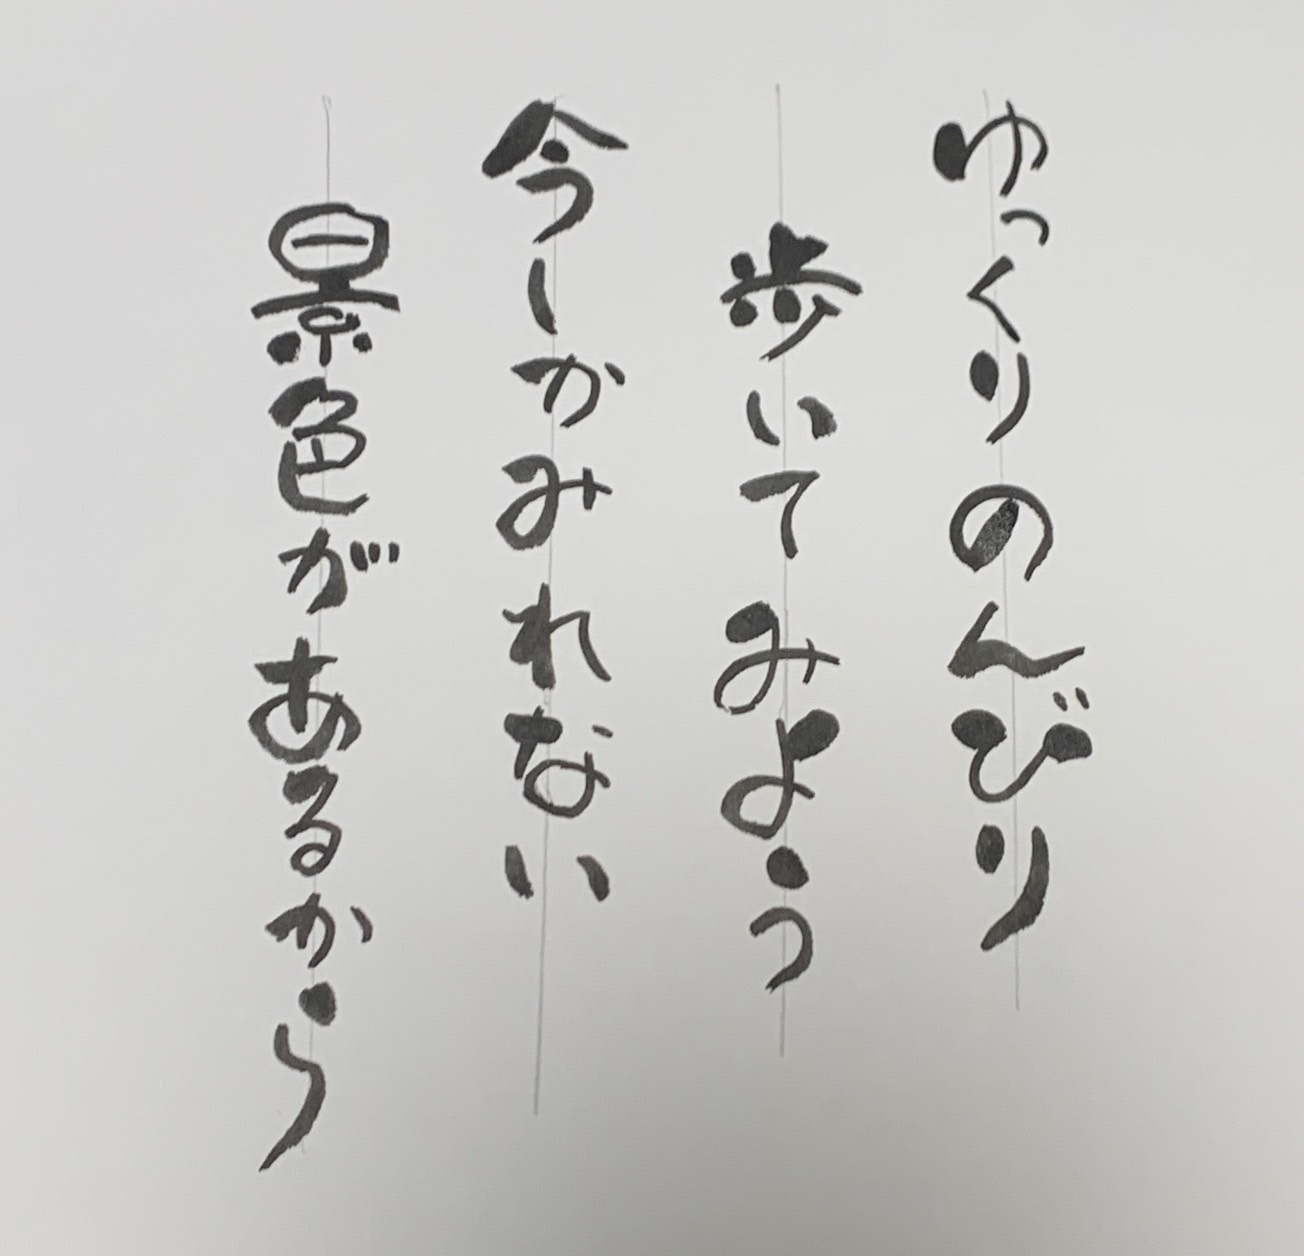 ゆっくりのんびり
歩いてみよう
今しかみれない
景色があるから